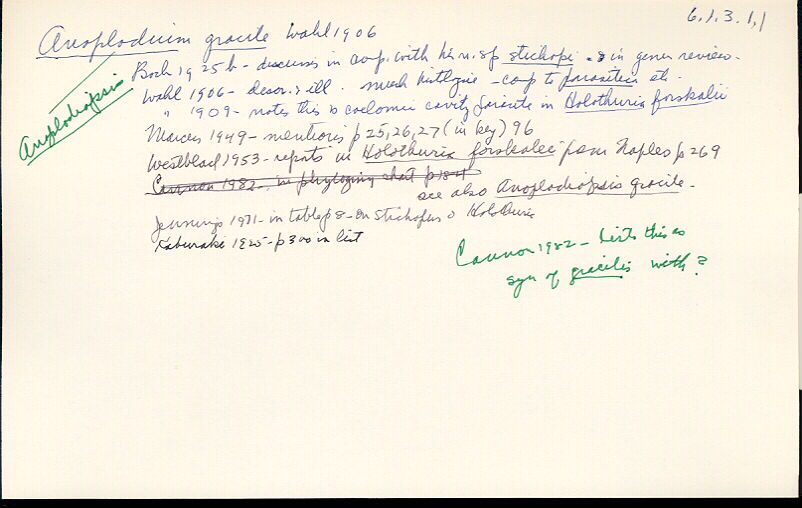 6.1.3.1.1
Anoplodium gracile Wahl 1906
Anoplodiopsis
Bock 1925b - discusses in comp. with his n. sp stichopi - & in genus review.
Wahl 1906 - descr. & ill. much histologie - comp to parasitica etc.
" 1909 - notes this is coelomic cavity parasite in Holothuria forskalii
Marcus 1949 - mentions p 25, 26, 27 (in key) 96
Westblad 1953 - reports in Holothuria forskalei from Naples p 269
Cannon 1982 - in phylogeny chart p 184
see also Anoplodiopsis gracile -
Jennings 1971 - in table p 8 - on stichopus & Holothuria
Kaburaki 1925 - p 300 in list
Cannon 1982 - lists this as
syn of gracilis with ?